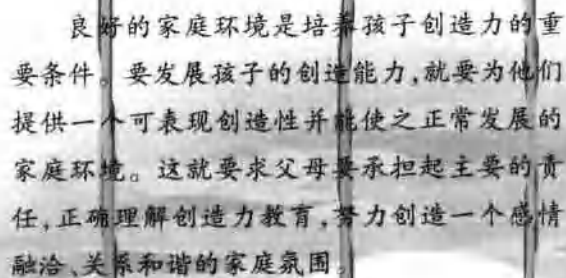 良好的家庭环境是培养孩子创造力的重
要条件。要发展孩子的创造能力,就要为他们
提供一个可表现创造性并能使之正常发展的
家庭环境。这就要求父母要承担起主要的责
任,正确理解创造力教育,努力创造一个感情
融洽、关系和谐的家庭氛围。